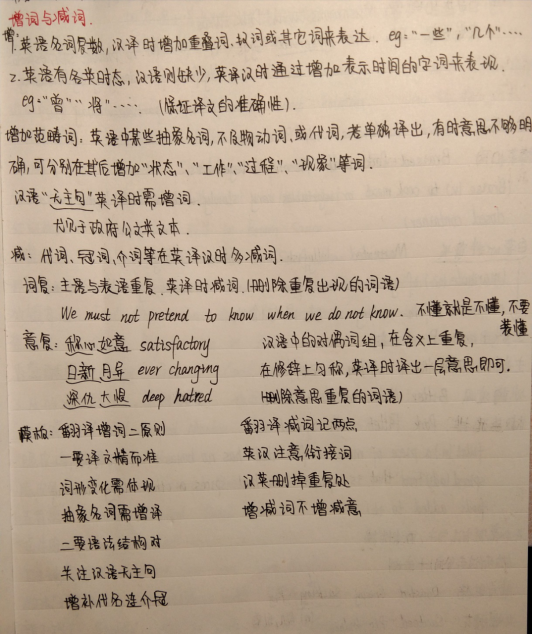 增词与减词.
增:1.英语名词复数,汉译时增加重叠词.数词或其它词来表达. eg:“一些”,“几个”....
2.英语有各类时态,汉语则缺少,英译汉时通过增加表示时间的字词来表现.
eg:“曾”“将”.... (保证译文的准确性).
增加范畴词:英语中某些抽象名词,不及物动词、或代词,若单独译出,有时意思不够明
确,可分别在其后增加“状态”、“工作”、“过程”、“现象”等词.
汉语“无主句”英译时需增词.
尤见于政府公文类文本.
减:代词、冠词,介词等在英译汉时多减词.
词复:主语与表语重复.英译时减词.(删除重复出现的词语)
We must not pretend to know when we do not know. 不懂就是不懂,不要
装懂
意复:称心如意 satisfactory 汉语中的对偶词组,在含义上重复,
日新月异 ever changing 在修辞上匀称,英译时译出一层意思即可.
深仇大恨 deep hatred (删除意思重复的词语)
模板:翻译增词二原则 翻译减词记两点
一要译文精而准 英汉注意衔接词
词形变化需体现 汉英删掉重复处
抽象名词需增译 增减词不增减意
二要语法结构对
关注汉语无主句
增补代名连介冠